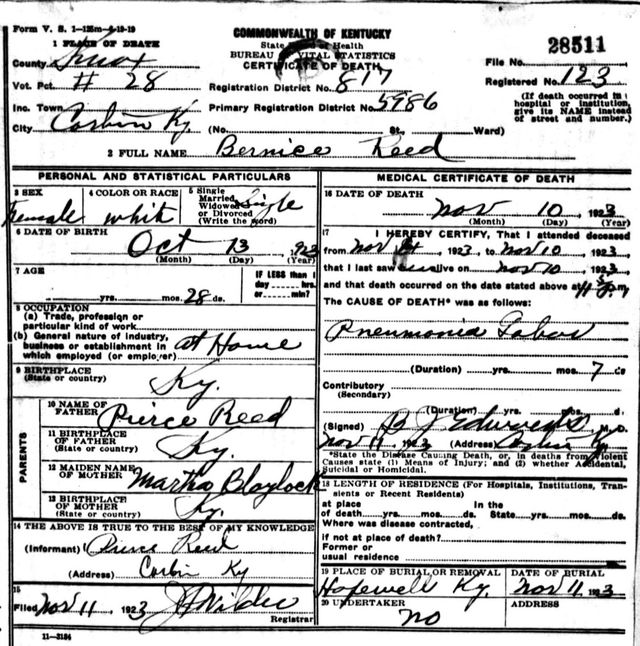 Form V. S. 1—125m—4-19-19
COMMONWEALTH OF KENTUCKY
State Board of Health
BUREAU OF VITAL STATISTICS
CERTIFICATE OF DEATH
28511
File No.
Registered No. 123
(If death occurred in a hospital or institution, give its NAME instead of street and number.)
1 PLACE OF DEATH
County Knox
Vot. Pct. # 28
Registration District No. 817
Inc. Town
Primary Registration District No. 5986
City Corbin Ky. (No. St., Ward)
2 FULL NAME Bernice Reed
PERSONAL AND STATISTICAL PARTICULARS
3 SEX Female
4 COLOR OR RACE white
5 Single Married, Widowed or Divorced (Write the word) Single
6 DATE OF BIRTH Oct 13 1923
(Month) (Day) (Year)
7 AGE
yrs. mos. 28 ds.
IF LESS than 1 day hrs. or min?
8 OCCUPATION
(a) Trade, profession or particular kind of work
(b) General nature of industry, business or establishment in which employed (or employer) at Home
9 BIRTHPLACE (State or country) Ky.
PARENTS
10 NAME OF FATHER Pierce Reed
11 BIRTHPLACE OF FATHER (State or country) Ky.
12 MAIDEN NAME OF MOTHER Martha Blaylock
13 BIRTHPLACE OF MOTHER (State or country) Ky.
14 THE ABOVE IS TRUE TO THE BEST OF MY KNOWLEDGE
(Informant) Pierce Reed
(Address) Corbin Ky
15
Filed Nov 11, 1923 Wilder
Registrar
11—3184
MEDICAL CERTIFICATE OF DEATH
16 DATE OF DEATH
Nov 10, 1923
(Month) (Day) (Year)
17 I HEREBY CERTIFY, That I attended deceased
from Nov 1923, to Nov 10, 1923
that I last saw alive on Nov 10, 1923
and that death occurred on the date stated above at m,
The CAUSE OF DEATH* was as follows:
Pneumonia Lobar
(Duration) yrs. mos. 7 ds
Contributory
(Secondary)
(Duration) yrs. mos. d.
(Signed) B J Edwards M. D.
Nov 11, 1923 (Address) Corbin Ky
*State the Disease Causing Death, or, in deaths from Violent Causes state (1) Means of Injury; and (2) whether Accidental, Suicidal or Homicidal.
18 LENGTH OF RESIDENCE (For Hospitals, Institutions, Transients or Recent Residents)
at place of death yrs. mos. ds. In the State yrs. mos. ds.
Where was disease contracted,
if not at place of death?
Former or usual residence
19 PLACE OF BURIAL OR REMOVAL
Hopewell Ky.
DATE OF BURIAL
Nov 11, 1923
20 UNDERTAKER
no
ADDRESS